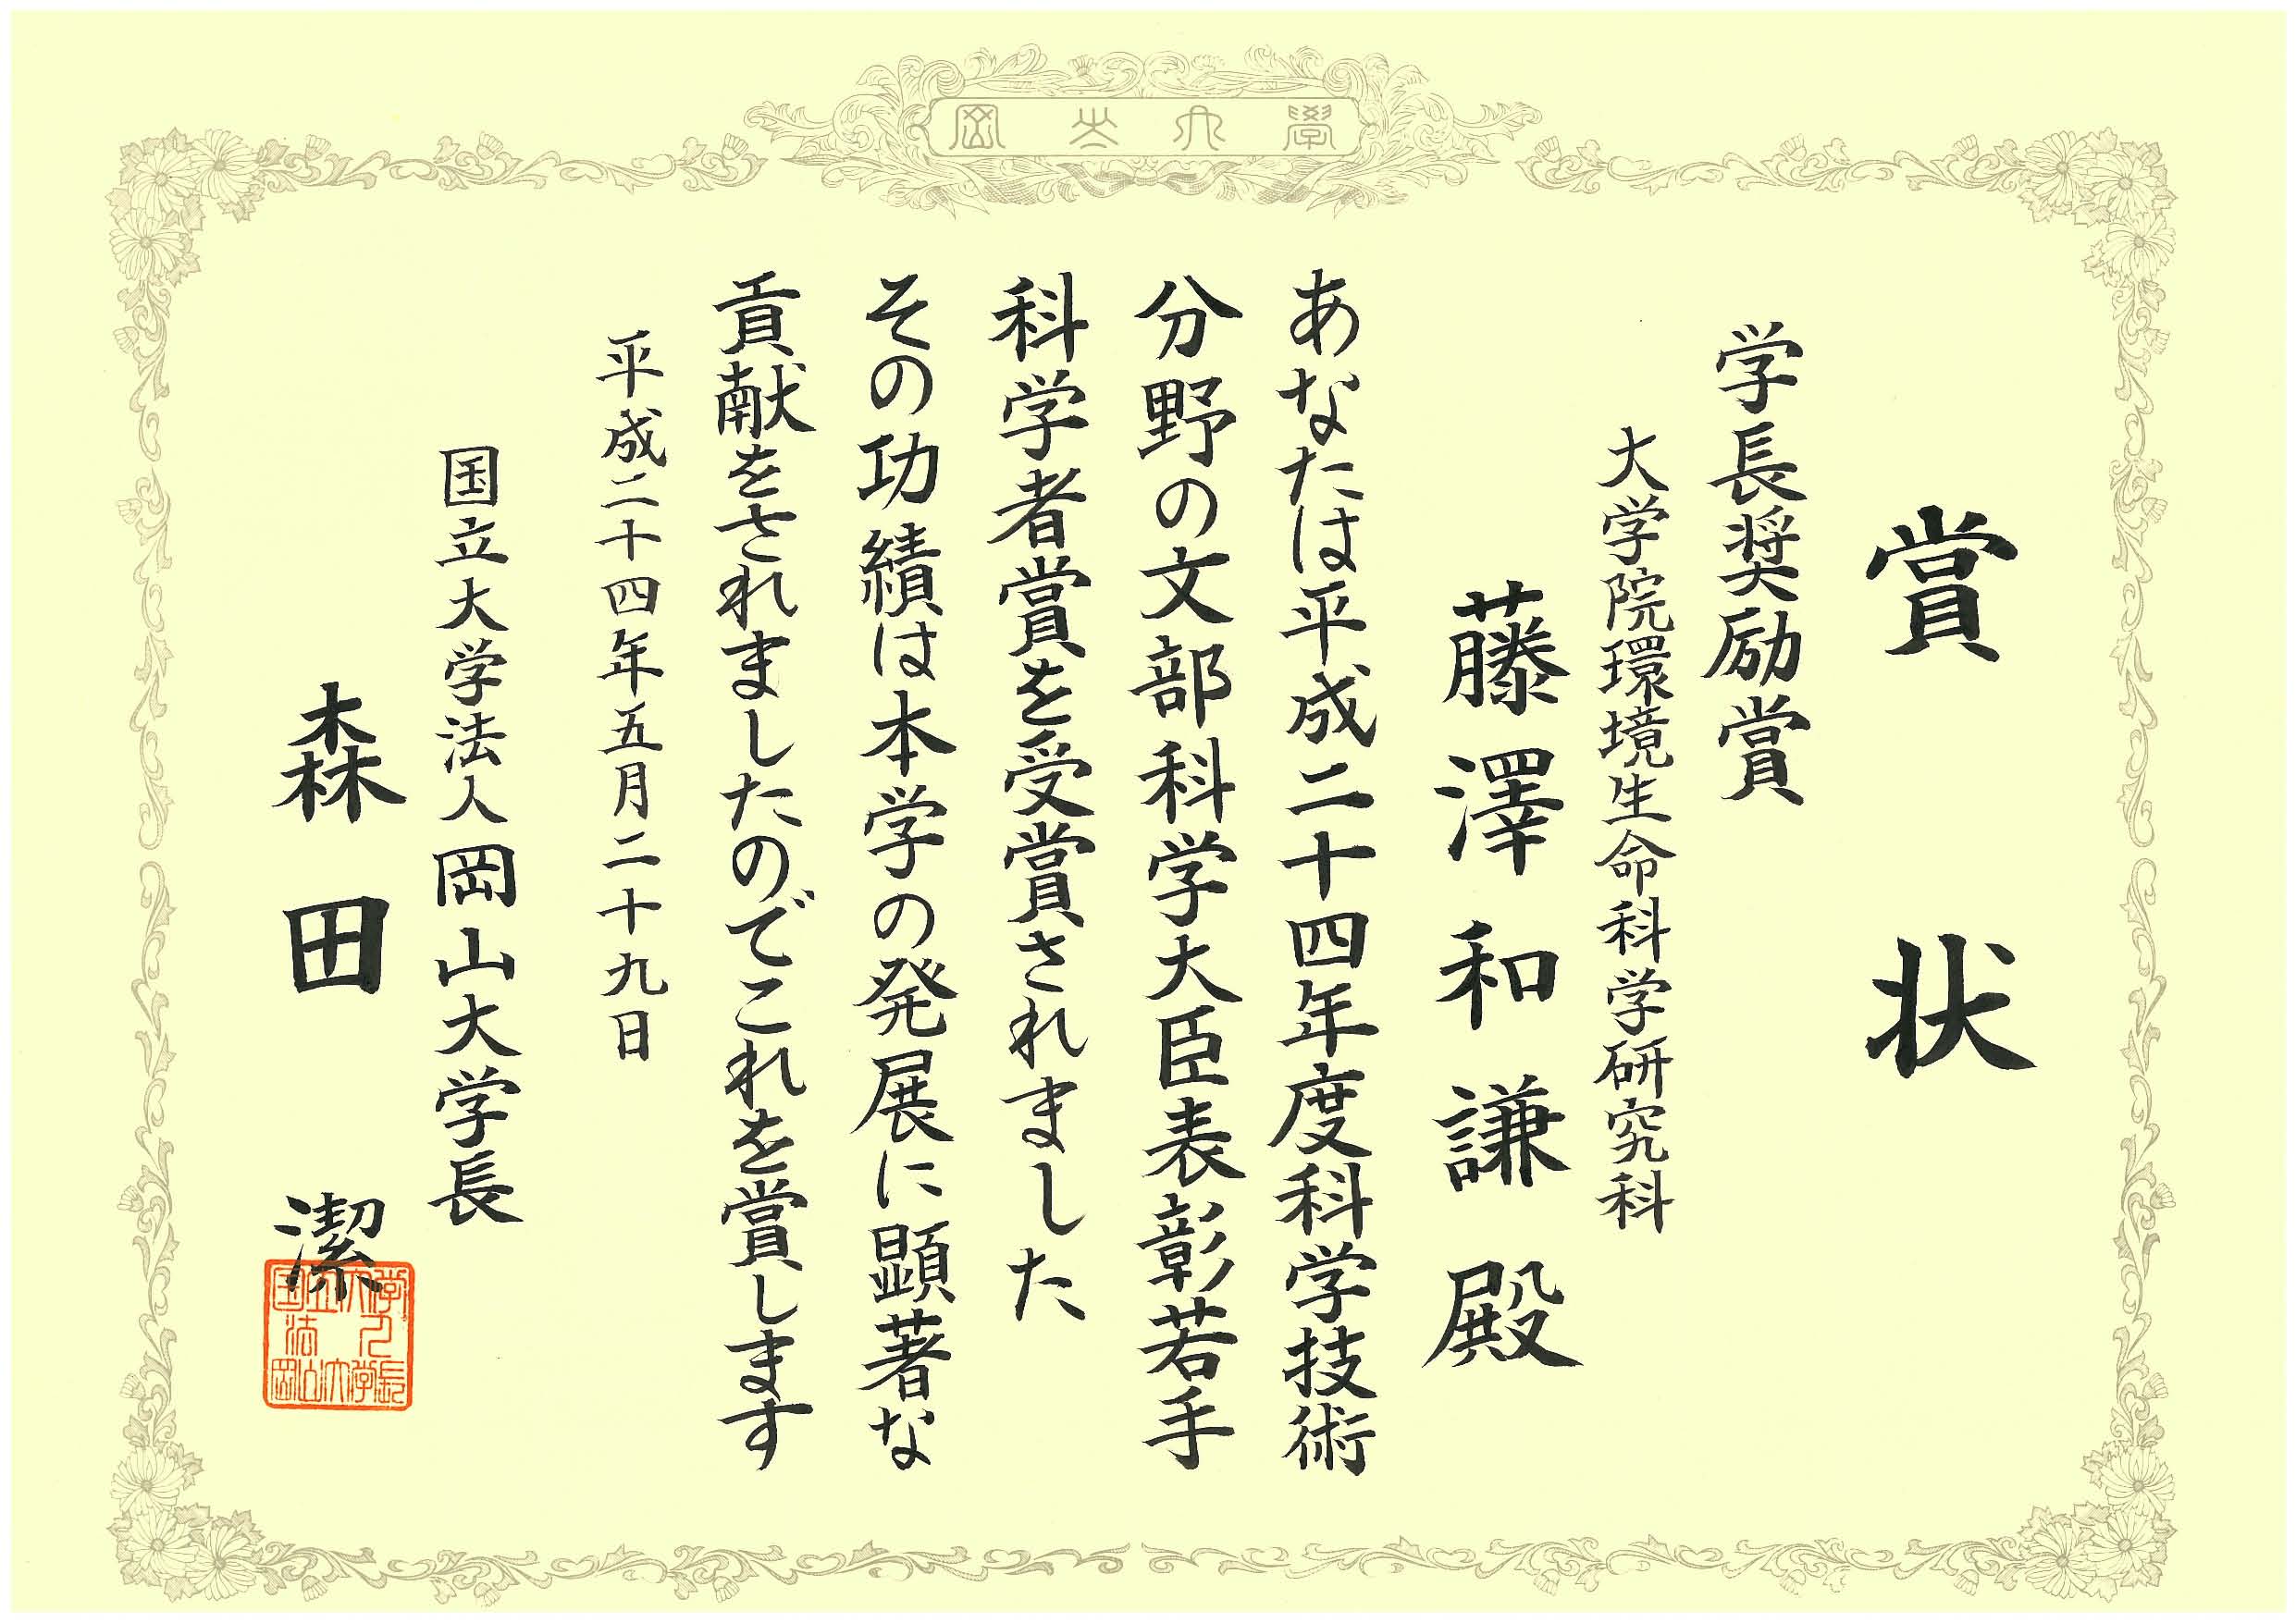 岡山大學
賞状
学長奨励賞
大学院環境生命科学研究科
藤澤和謙殿
あなたは平成二十四年度科学技術
分野の文部科学大臣表彰若手
科学者賞を受賞されました
その功績は本学の発展に顕著な
貢献をされましたのでこれを賞します
平成二十四年五月二十九日
国立大学法人岡山大学長
森田潔
国立大学
法人
岡山大学長